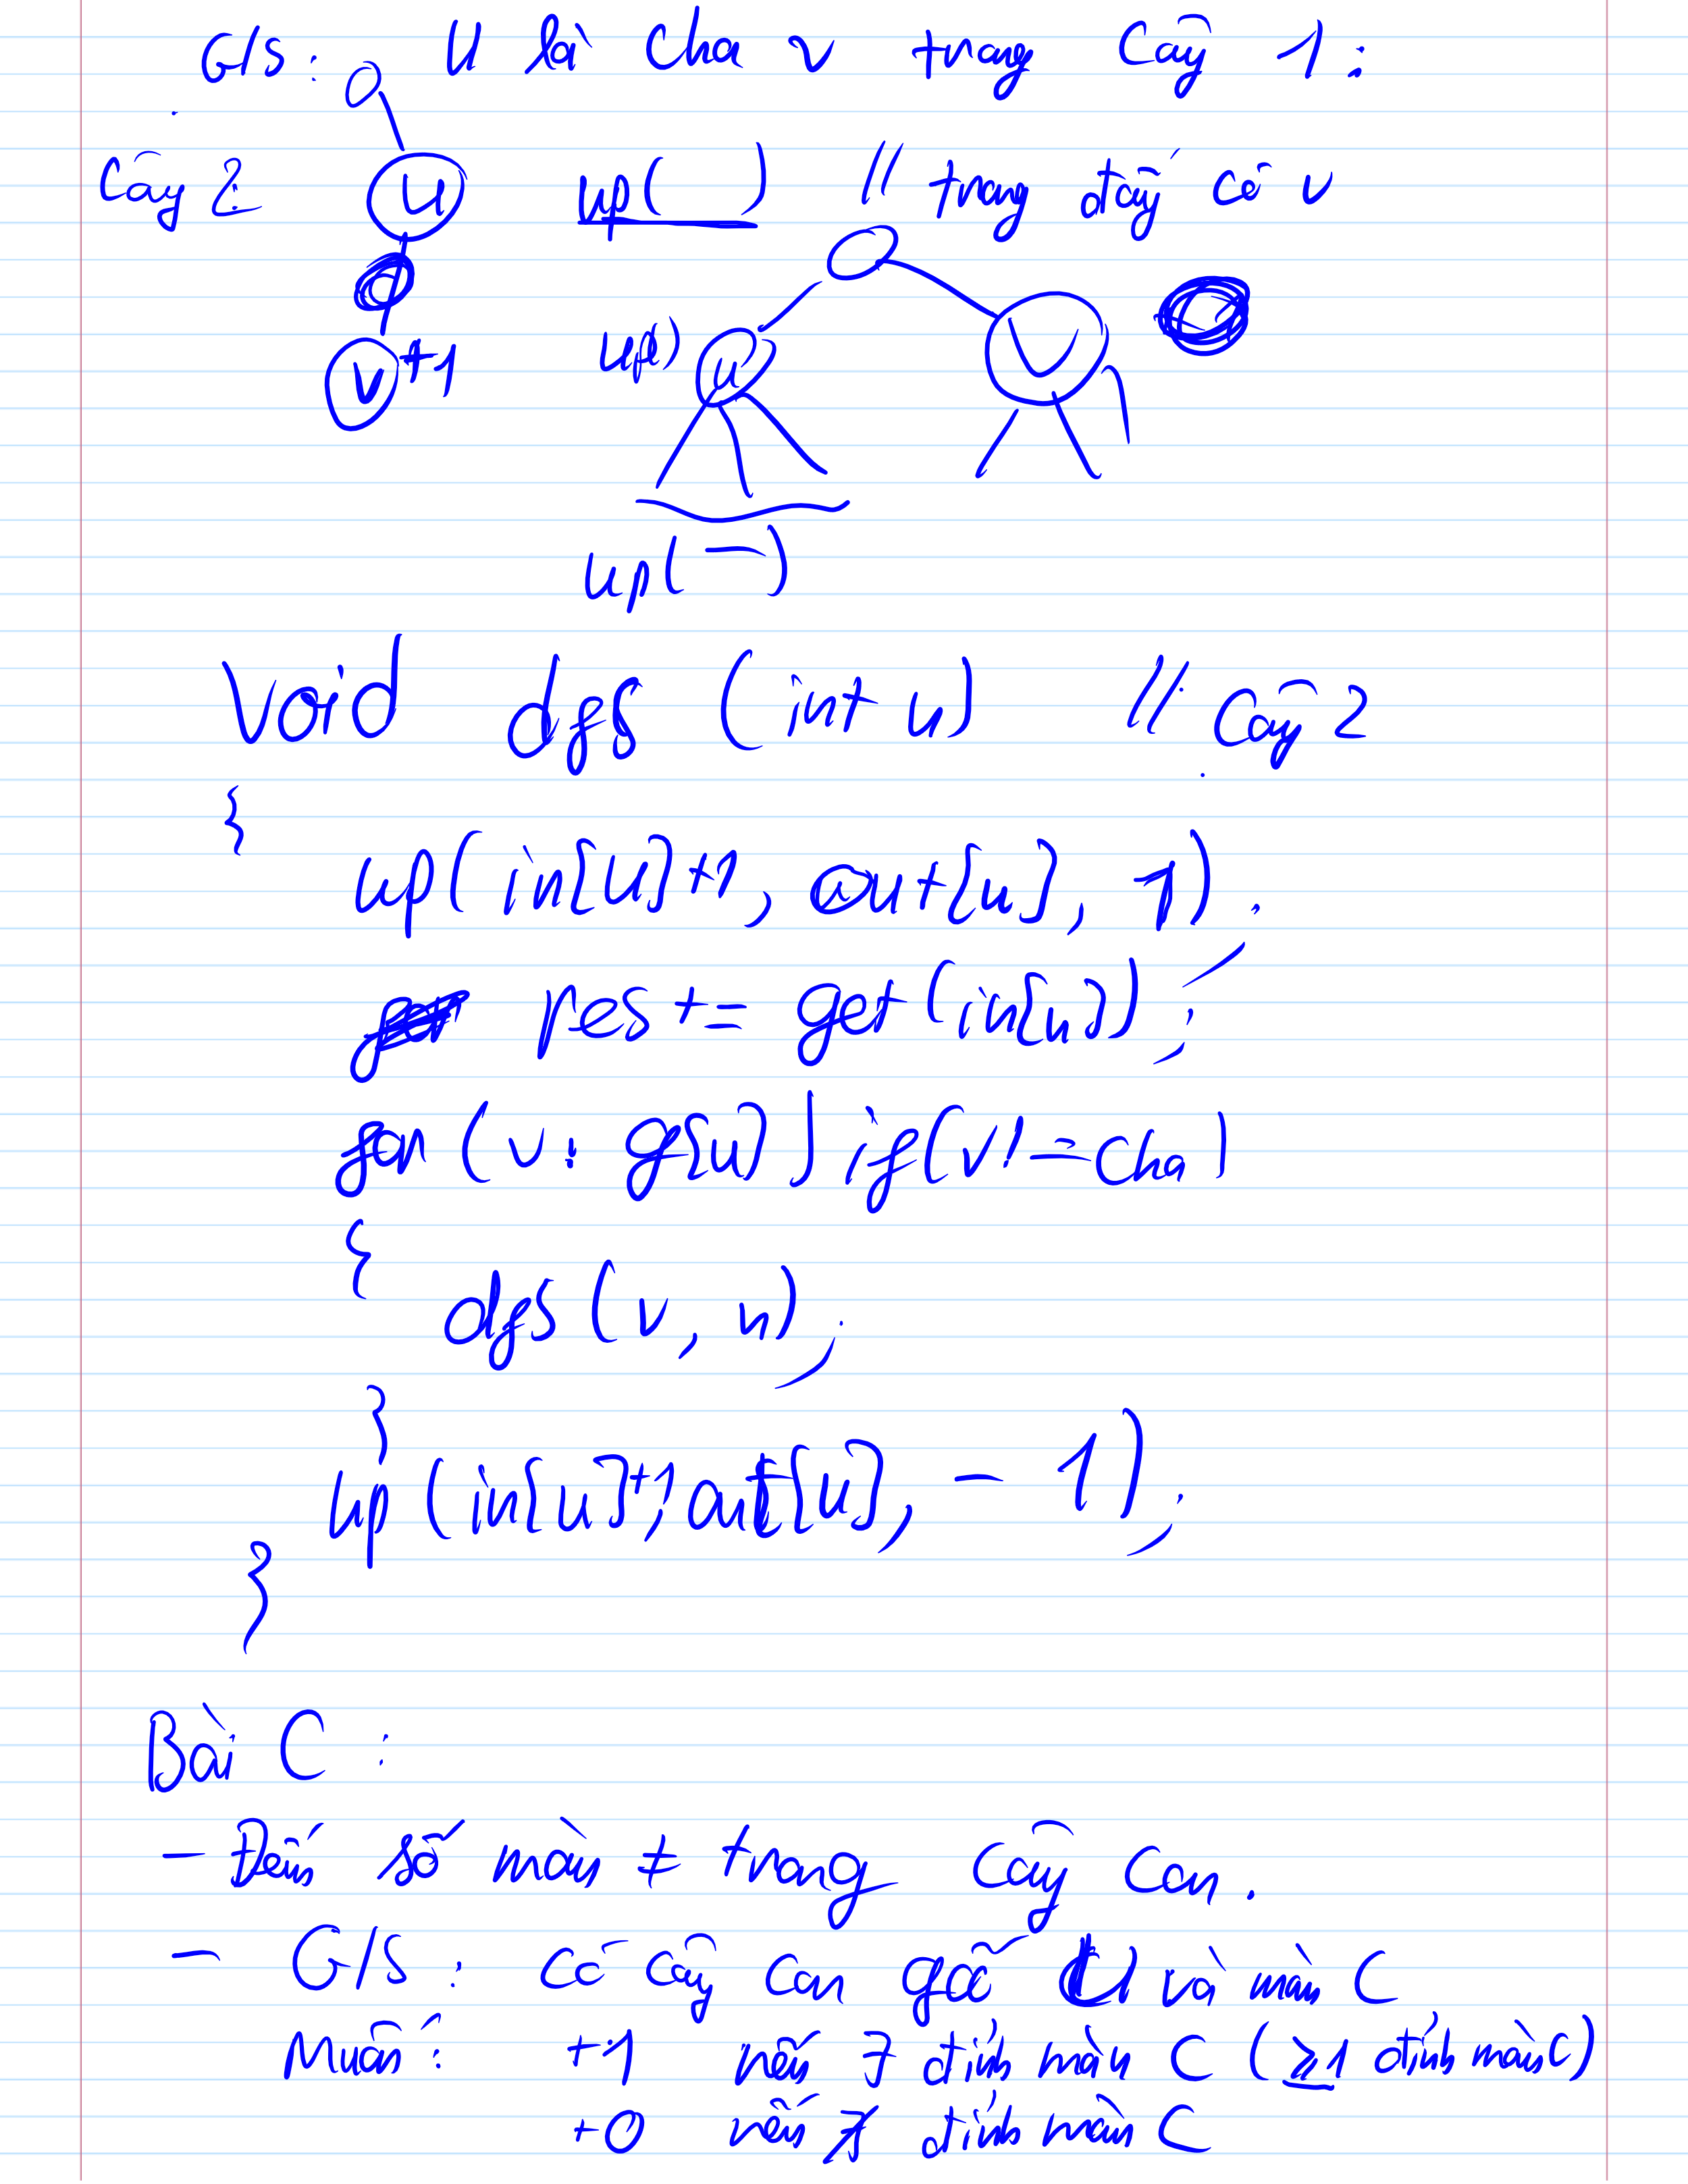 G/S: U là cha v trong cây 1:
Cây 2: u up( ) // trong đấy có v
v +1 up( ) u v
up( — )
Void dfs (int u) // Cây 2
{
up(in[u]+1, out[u], 1);
res += get(in[u]);
for (v: g[u]) if(v!=cha)
{
dfs(v, u);
}
up(in[u]+1, out[u], -1);
}
Bài C:
- Đếm số màu ≠ trong cây con.
- G/S: Có cây con gốc U và màu C
Muốn: +1 nếu ∃ đỉnh màu C (≥1 đỉnh màu C)
+0 nếu ∄ đỉnh màu C